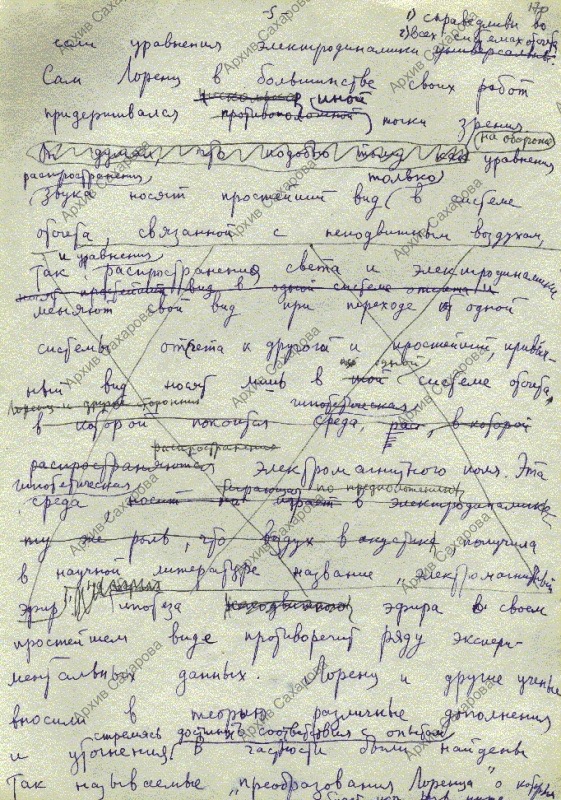 -5-
170
1) справедливы во
2) всех системах отсчета
сами уравнения электродинамики универсальны.
Сам Лоренц в большинстве своих работ
придерживался противоположной иной точки зрения
на обороте
Он думал, что подобно тому как уравнения
распространения только
звука носят простейший вид в системе
отсчета, связанной с неподвижным воздухом,
и уравнения
Так распространения света и электродинамики
вид в одной системе отсчета и
меняют свой вид при переходе от одной
системы отсчета к другой и простейший, привыч-
ный вид носят лишь в той одной системе отсчета,
Лоренц и другие сторонники гипотетическая
в которой покоится среда, в которой
распространение
распространяются электромагнитного поля. Эта
гипотетическая играющая по предположению
среда носит играет в электродинамике
ту же роль, что воздух в акустике получила
в научной литературе название „электромагнитный
эфир". Гипотеза неподвижного эфира в своем
простейшем виде противоречит ряду экспери-
ментальных данных. Лоренц и другие ученые
вносили в теорию различные дополнения
стремясь достичь соответствия с опытом
и уточнения. В частности были найдены
так называемые „преобразования Лоренца" о которых
Архив Сахарова